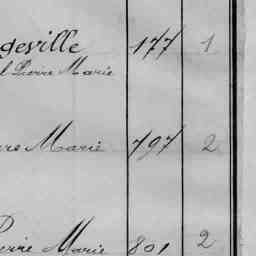 geville 177 1
l Pierre Marie
rre Marie 797 2
Pierre Marie 801 2